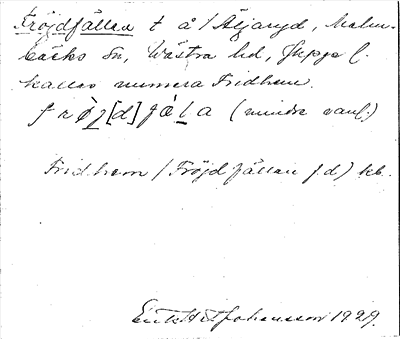 Fröjdfällan t å/Äljaryd, Malm-
bäcks sn, Västra hd, Jkpgs l.
kallas numera Fridhem.
frö̀j[d]fäla (mindre vanl.)
Fridhem (Fröjdfällan f.d) kb.
Erik Johansson 1929.